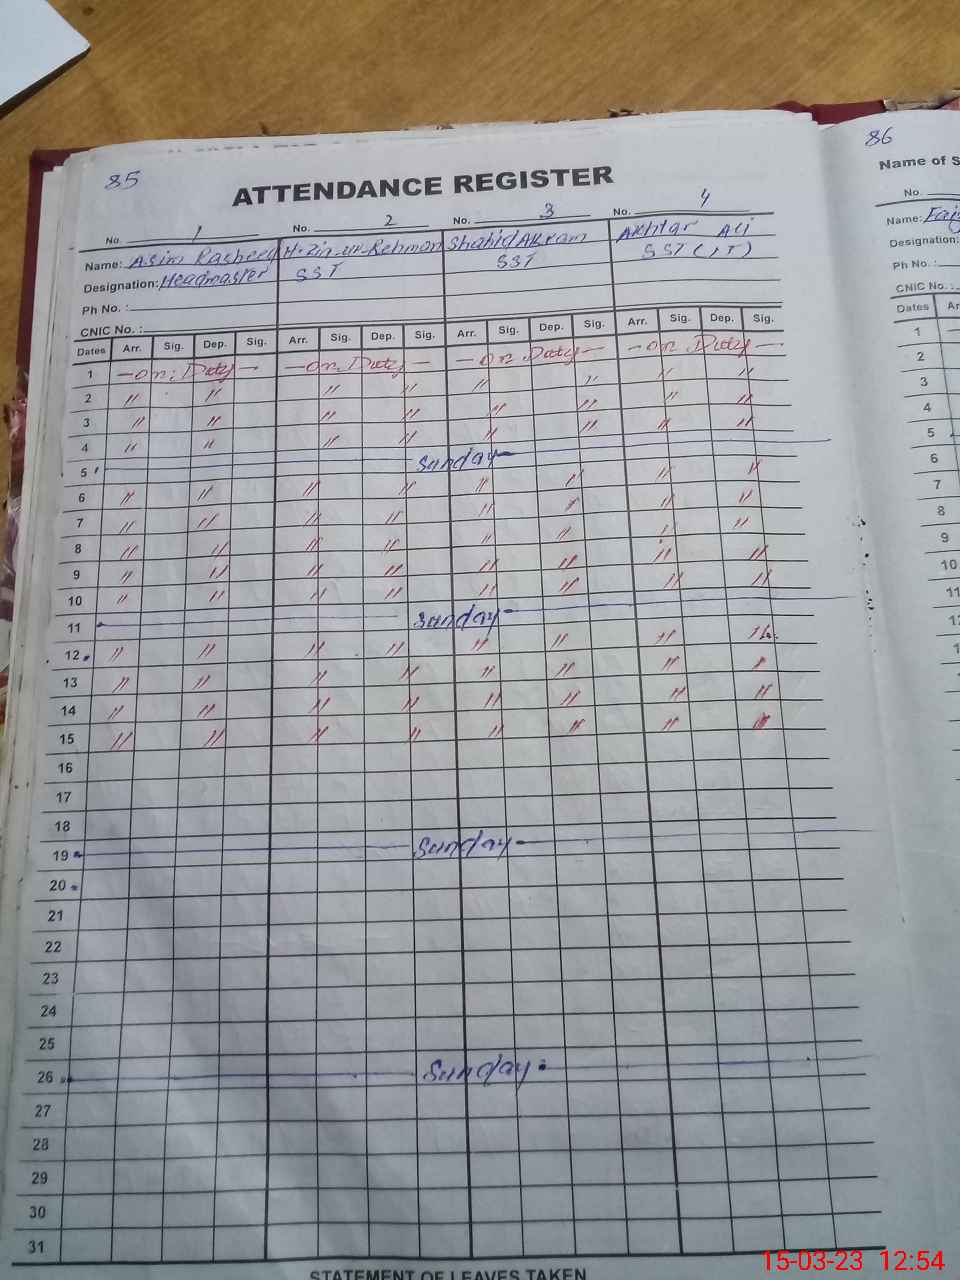 85
ATTENDANCE REGISTER
No. 1 No. 2 No. 3 No. 4
Name: Asim Rasheed H. Zia-ur-Rehman Shahid Akram Akhtar Ali
Designation: Headmaster SST SST SST (IT)
Ph No. :
CNIC No. :
Dates Arr. Sig. Dep. Sig. Arr. Sig. Dep. Sig. Arr. Sig. Dep. Sig. Arr. Sig. Dep. Sig.
1 -On Duty- -On Duty- -On Duty- -On Duty-
2 " " " " " " " "
3 " " " " " " " "
4 " " " " " " " "
5 Sunday
6 " " " " " " " "
7 " " " " " " " "
8 " " " " " " " "
9 " " " " " " " "
10 " " " " " " " "
11 Sunday
12 " " " " " " " "
13 " " " " " " " "
14 " " " " " " " "
15 " " " " " " " "
16
17
18
19 Sunday
20
21
22
23
24
25
26 Sunday
27
28
29
30
31
STATEMENT OF LEAVES TAKEN
86
Name of S
No.
Name:
Designation:
Ph No. :
CNIC No. :
Dates Ar
1
2
3
4
5
6
7
8
9
10
11
15-03-23 12:54